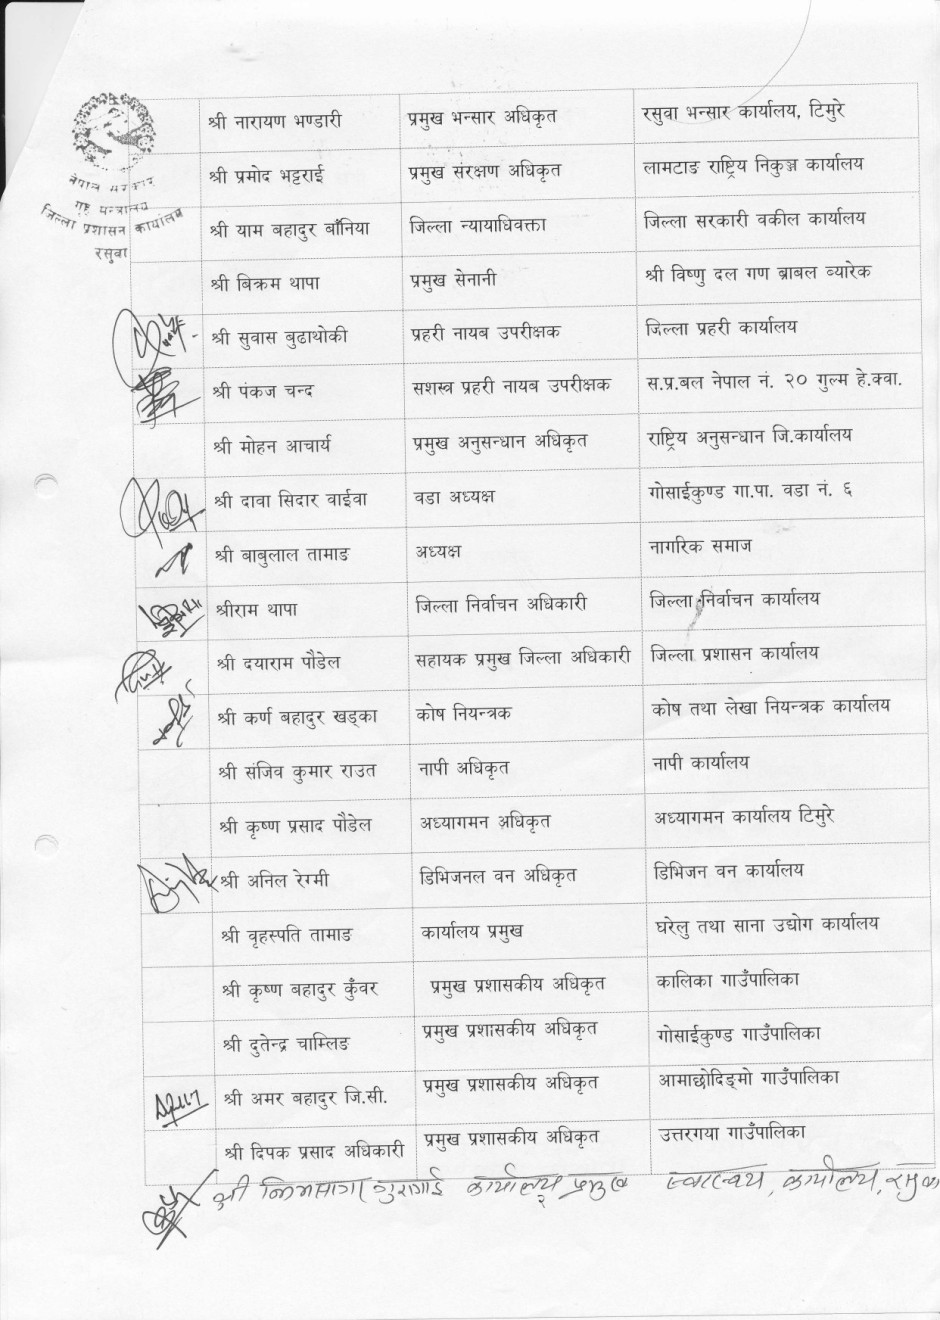 नेपाल सरकार
गृह मन्त्रालय
जिल्ला प्रशासन कार्यालय
रसुवा
श्री नारायण भण्डारी प्रमुख भन्सार अधिकृत रसुवा भन्सार कार्यालय, टिमुरे
श्री प्रमोद भट्टराई प्रमुख संरक्षण अधिकृत लामटाङ राष्ट्रिय निकुञ्ज कार्यालय
श्री याम बहादुर बाँनिया जिल्ला न्यायाधिवक्ता जिल्ला सरकारी वकील कार्यालय
श्री बिक्रम थापा प्रमुख सेनानी श्री विष्णु दल गण ब्राबल व्यारेक
श्री सुवास बुढाथोकी प्रहरी नायब उपरीक्षक जिल्ला प्रहरी कार्यालय
श्री पंकज चन्द सशस्त्र प्रहरी नायब उपरीक्षक स.प्र.बल नेपाल नं. २० गुल्म हे.क्वा.
श्री मोहन आचार्य प्रमुख अनुसन्धान अधिकृत राष्ट्रिय अनुसन्धान जि.कार्यालय
श्री दावा सिदार वाईवा वडा अध्यक्ष गोसाईकुण्ड गा.पा. वडा नं. ६
श्री बाबुलाल तामाङ अध्यक्ष नागरिक समाज
श्रीराम थापा जिल्ला निर्वाचन अधिकारी जिल्ला निर्वाचन कार्यालय
श्री दयाराम पौडेल सहायक प्रमुख जिल्ला अधिकारी जिल्ला प्रशासन कार्यालय
श्री कर्ण बहादुर खड्का कोष नियन्त्रक कोष तथा लेखा नियन्त्रक कार्यालय
श्री संजिव कुमार राउत नापी अधिकृत नापी कार्यालय
श्री कृष्ण प्रसाद पौडेल अध्यागमन अधिकृत अध्यागमन कार्यालय टिमुरे
श्री अनिल रेग्मी डिभिजनल वन अधिकृत डिभिजन वन कार्यालय
श्री वृहस्पति तामाङ कार्यालय प्रमुख घरेलु तथा साना उद्योग कार्यालय
श्री कृष्ण बहादुर कुँवर प्रमुख प्रशासकीय अधिकृत कालिका गाउँपालिका
श्री दुतेन्द्र चाम्लिङ प्रमुख प्रशासकीय अधिकृत गोसाईकुण्ड गाउँपालिका
श्री अमर बहादुर जि.सी. प्रमुख प्रशासकीय अधिकृत आमाछोदिङ्मो गाउँपालिका
श्री दिपक प्रसाद अधिकारी प्रमुख प्रशासकीय अधिकृत उत्तरगया गाउँपालिका
श्री कार्यालय प्रमुख स्वास्थ्य, कार्यालय, रसुवा
२